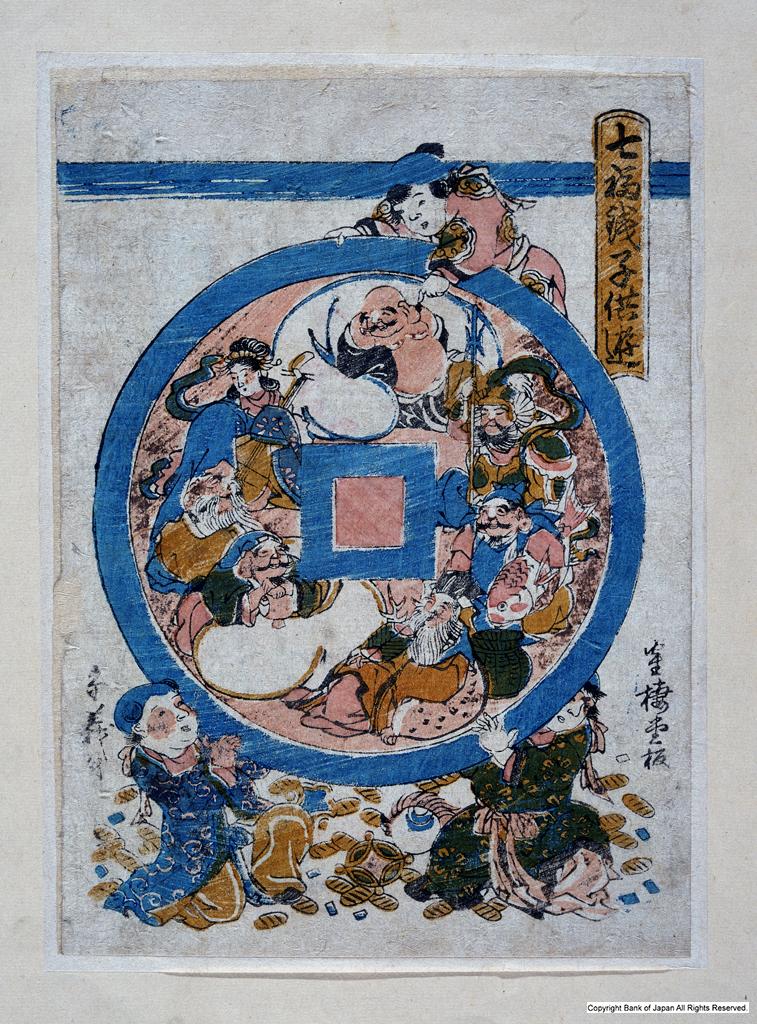 七福銭子供遊
栄棲堂板
Copyright Bank of Japan All Rights Reserved.